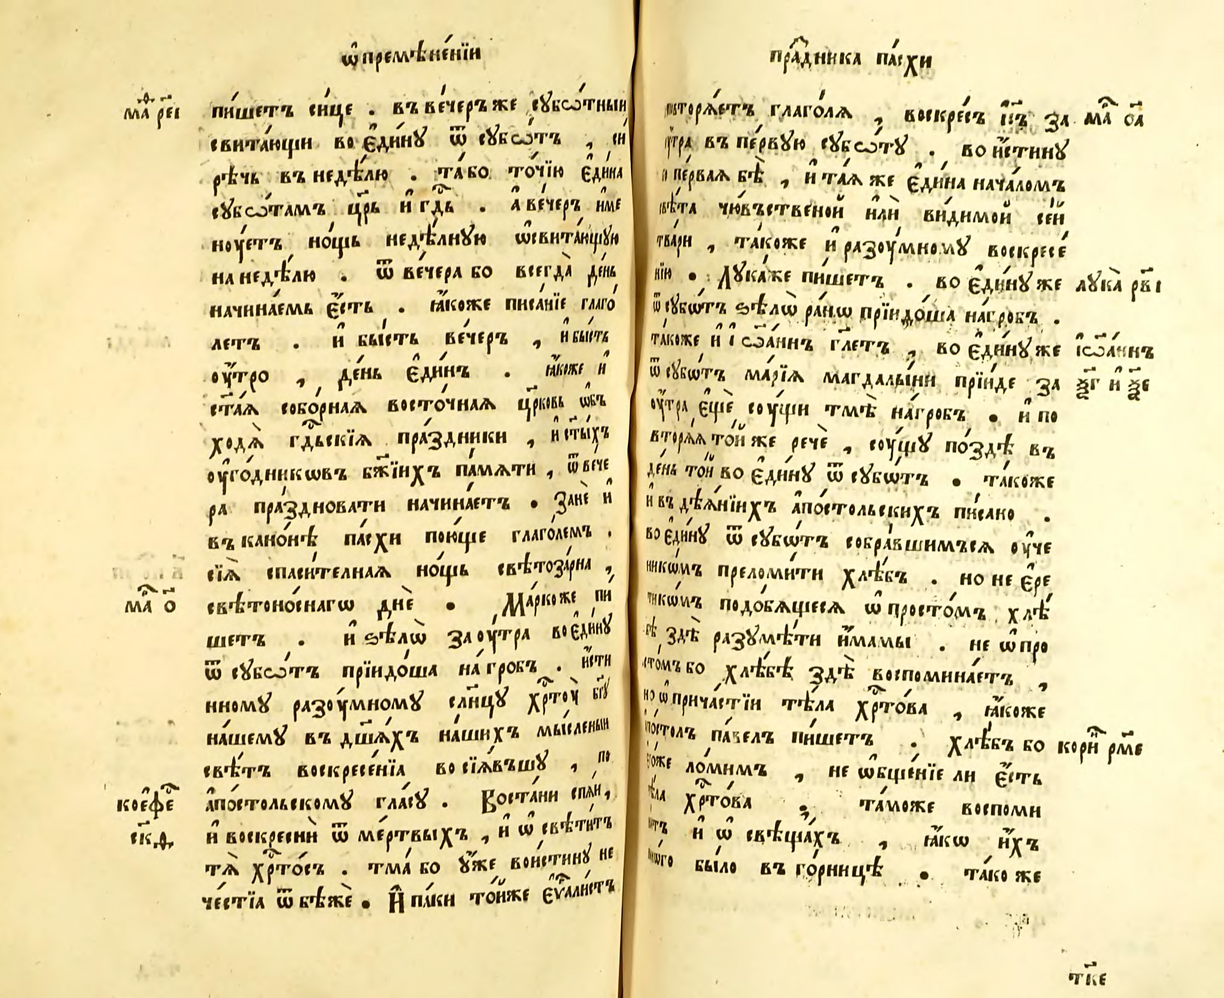 ѡ҆ премѣне́нїи
ма́ѳ рє҃і
пи́шетъ си́це . въ ве́черъ же сꙋббѡ́тныи
свита́ющи во є҆ди́нꙋ ѿ сꙋббѡ́тъ , си
рѣ́чь въ недѣ́лю . та́ бо то́чїю є҆ди́на
сꙋббѡ́тамъ цр҃ь и҆ гдⷭ҇ь . а҆ ве́черъ име
нꙋ́етъ но́щь недѣ́лнꙋю ѡ҆свита́ющꙋю
на недѣ́лю . ѿ ве́чера бо всегда̀ де́нь
начина́емь є҆́сть . ꙗ҆́коже писа́нїе глаго́
летъ . и҆ бы́сть ве́черъ , и҆ бы́сть
ѹ҆́тро , де́нь є҆ди́нъ . ꙗ҆́коже и҆
ст҃а́ѧ собо́рнаѧ восто́чнаѧ цр҃ковь ѡ҆бъ
ходѧ̀ гдⷭ҇ьскїѧ пра́здники , и҆ ст҃ы́хъ
ѹ҆го́дникѡвъ бж҃їихъ па́мѧти , ѿ вече
ра пра́здновати начина́етъ . Занѐ и҆
въ кано́нѣ па́схи пою́ще глаго́лемъ .
сїѧ̀ спаси́телнаѧ но́щь свѣтоза́рна ,
ма́р о҃
свѣтоно́снагѡ днѐ . Ма́рко же пи
шетъ . и҆ ѕѣлѡ̀ за ѹ҆́тра во є҆ди́нꙋ
ѿ сꙋббѡ́тъ прїидо́ша на гро́бъ . и҆сти
нномꙋ разꙋ́мномꙋ сл҃нцꙋ хрⷭ҇тꙋ̀ бг҃ꙋ
на́шемꙋ въ дш҃а́хъ на́шихъ мы́сленыи
свѣ́тъ воскресе́нїа возсїѧ́въшꙋ , по
коеⷴ҇ фе
а҆по́стольскомꙋ гла́сꙋ . Воста́ни спѧ́й ,
ск҃д
и҆ воскреснѝ ѿ ме́ртвыхъ , и҆ ѡ҆свѣти́тъ
тѧ̀ хрⷭ҇то́съ . тма́ бо ᲂу҆же вои́стинꙋ не
че́стїа ѿбѣжѐ . И҆ па́ки то́йже є҆ѵⷢ҇али́стъ
пра́здника па́схи
повторѧ́етъ глаго́лѧ , воскре́съ і҆и҃съ за
ма́р о҃а
ѹ҆́тра въ пе́рвꙋю сꙋббѡ́тꙋ . во и҆́стинꙋ
и҆ пе́рваѧ бѣ̀ , и҆ та́ѧ же є҆ди́на нача́ломъ
свѣ́та чю́въственой и҆лѝ ви́димой сей
тва́ри , та́коже и҆ разꙋ́мномꙋ воскресе́
нїю . Лꙋка́ же пи́шетъ . во є҆ди́нꙋ же
лꙋка̀ рв҃і
ѿ сꙋббѡ́тъ ѕѣлѡ̀ ра́нѡ прїидо́ша на́ гробъ .
та́коже и҆ і҆ѡа́ннъ гл҃етъ , во є҆ди́нꙋ же
і҆ѡа́ннъ
ѿ сꙋббѡ́тъ марі́ѧ магдалы́ни прїи́де за
ѯ҃г и҆ ѯ҃е
ѹ҆́тра є҆щѐ сꙋ́щи тмѣ̀ на́ гробъ . и҆ по
вторѧ́ѧ то́й же речѐ , сꙋ́щꙋ по́здѣ въ
де́нь то́й во є҆ди́нꙋ ѿ сꙋббѡ́тъ . та́коже
и҆ въ дѣѧ́нїихъ а҆по́стольскихъ пи́сано .
во є҆ди́нꙋ ѿ сꙋббѡ́тъ собра́вшимъсѧ ѹ҆че
никѡ́мъ преломи́ти хлѣ́бъ . но не є҆ре
тикѡ́мъ подо́бѧщесѧ ѡ҆ просто́мъ хлѣ́
бѣ здѣ̀ разꙋмѣ́ти и҆́мамы . не ѡ҆ про
сто́мъ бо хлѣ́бѣ здѣ̀ воспомина́етъ ,
но ѡ҆ прича́стїи тѣ́ла хрⷭ҇то́ва , ꙗ҆́коже
а҆по́столъ па́велъ пи́шетъ . хлѣ́бъ бо
кори́нⷴ҇ рм҃е
є҆го́же ло́мимъ , не ѡ҆бще́нїе ли є҆́сть
тѣ́ла хрⷭ҇то́ва ; та́може воспоми
на́етъ и҆ ѡ҆ свѣща́хъ , ꙗ҆́кѡ и҆́хъ
мно́го бы́ло въ го́рницѣ . та́ко же
тк҃е